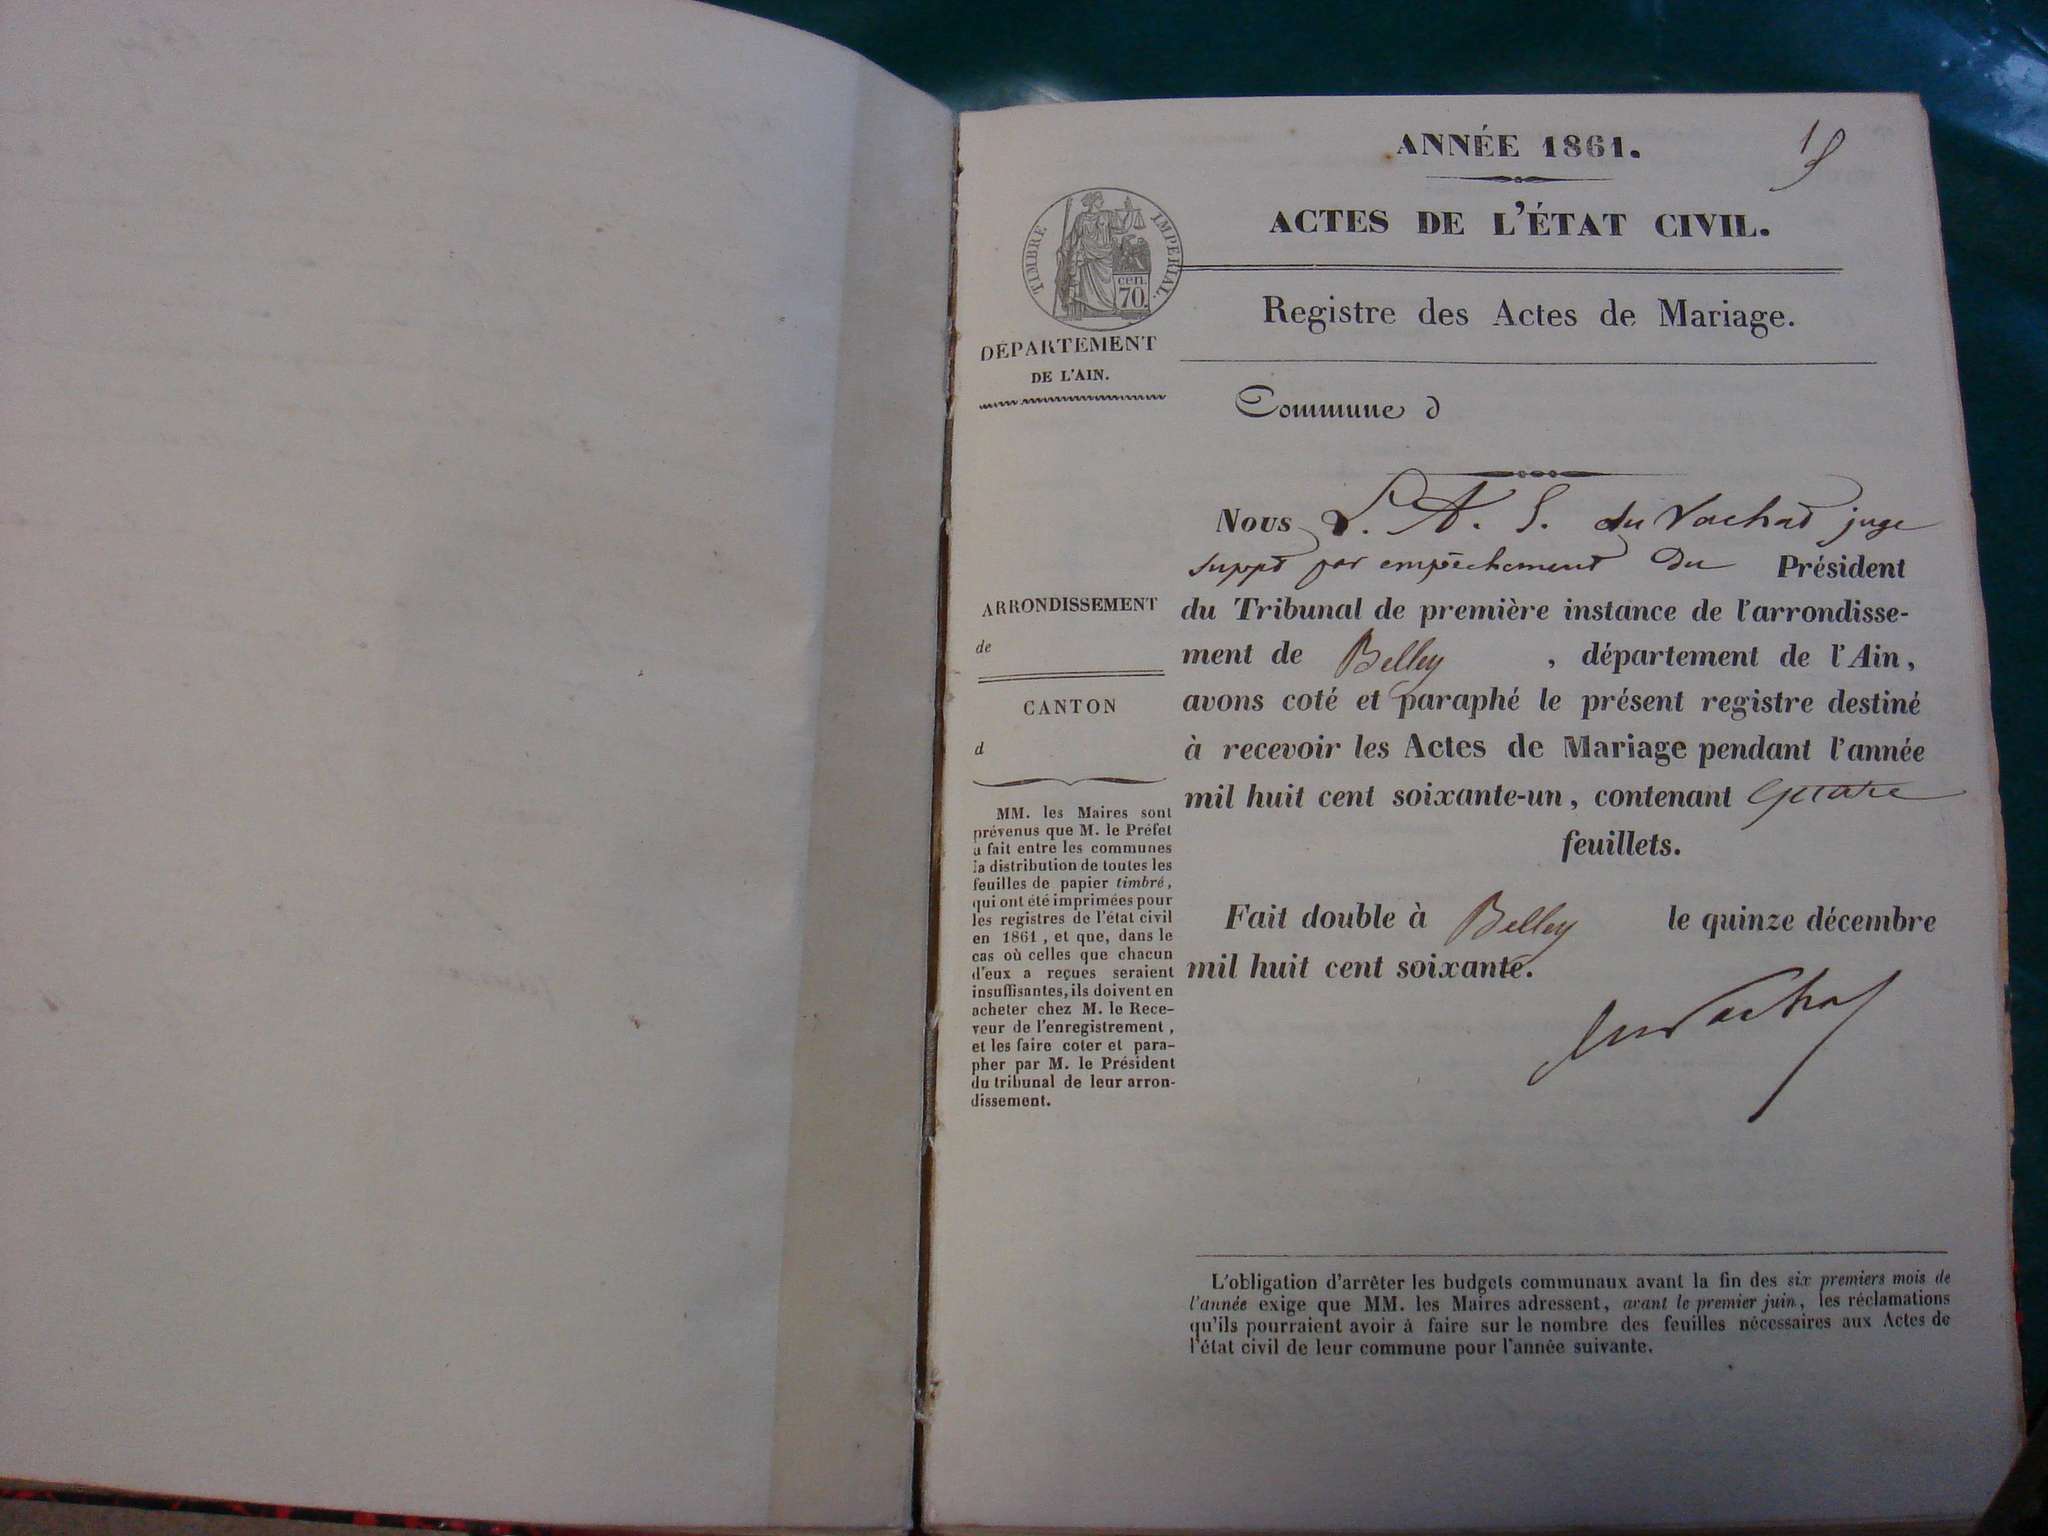 ANNÉE 1861.
1
ACTES DE L'ÉTAT CIVIL.
TIMBRE IMPERIAL.
cen.
70.
Registre des Actes de Mariage.
DÉPARTEMENT
DE L'AIN.
Commune d
Nous L. A. S. du Vachat juge
suppt par empêchement du Président
ARRONDISSEMENT
de
CANTON
d
du Tribunal de première instance de l'arrondisse-
ment de Belley, département de l'Ain,
avons coté et paraphé le présent registre destiné
à recevoir les Actes de Mariage pendant l'année
mil huit cent soixante-un, contenant Quatre
feuillets.
Fait double à Belley le quinze décembre
mil huit cent soixante.
du Vachat
MM. les Maires sont
prévenus que M. le Préfet
a fait entre les communes
la distribution de toutes les
feuilles de papier timbré,
qui ont été imprimées pour
les registres de l'état civil
en 1861, et que, dans le
cas où celles que chacun
d'eux a reçues seraient
insuffisantes, ils doivent en
acheter chez M. le Rece-
veur de l'enregistrement,
et les faire coter et para-
pher par M. le Président
du tribunal de leur arron-
dissement.
L'obligation d'arrêter les budgets communaux avant la fin des six premiers mois de
l'année exige que MM. les Maires adressent, avant le premier juin, les réclamations
qu'ils pourraient avoir à faire sur le nombre des feuilles nécessaires aux Actes de
l'état civil de leur commune pour l'année suivante.